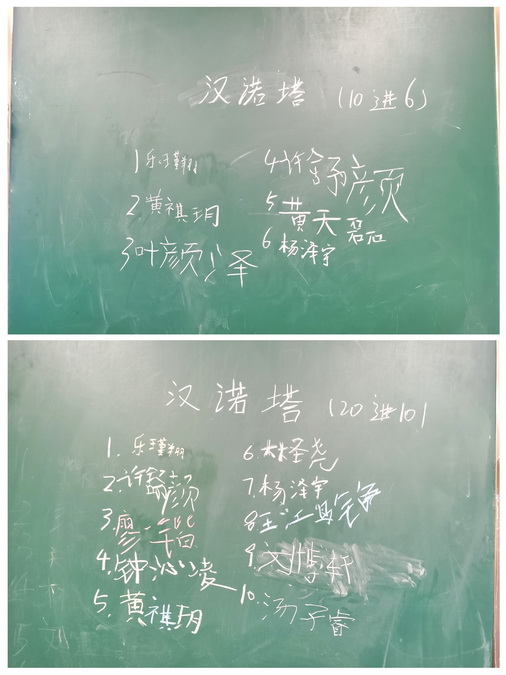 汉诺塔 (10进6)
1 乐瑾翔
2 黄祺玥
3 叶颜泽
4. 许舒颜
5 黄天磊
6 杨泽宇
汉诺塔 (20进10)
1. 乐瑾翔
2. 许舒颜
3. 廖一
4. 钟沁凌
5. 黄祺玥
6. 林圣尧
7. 杨泽宇
8 汪
9. 刘博轩
10. 汤子睿